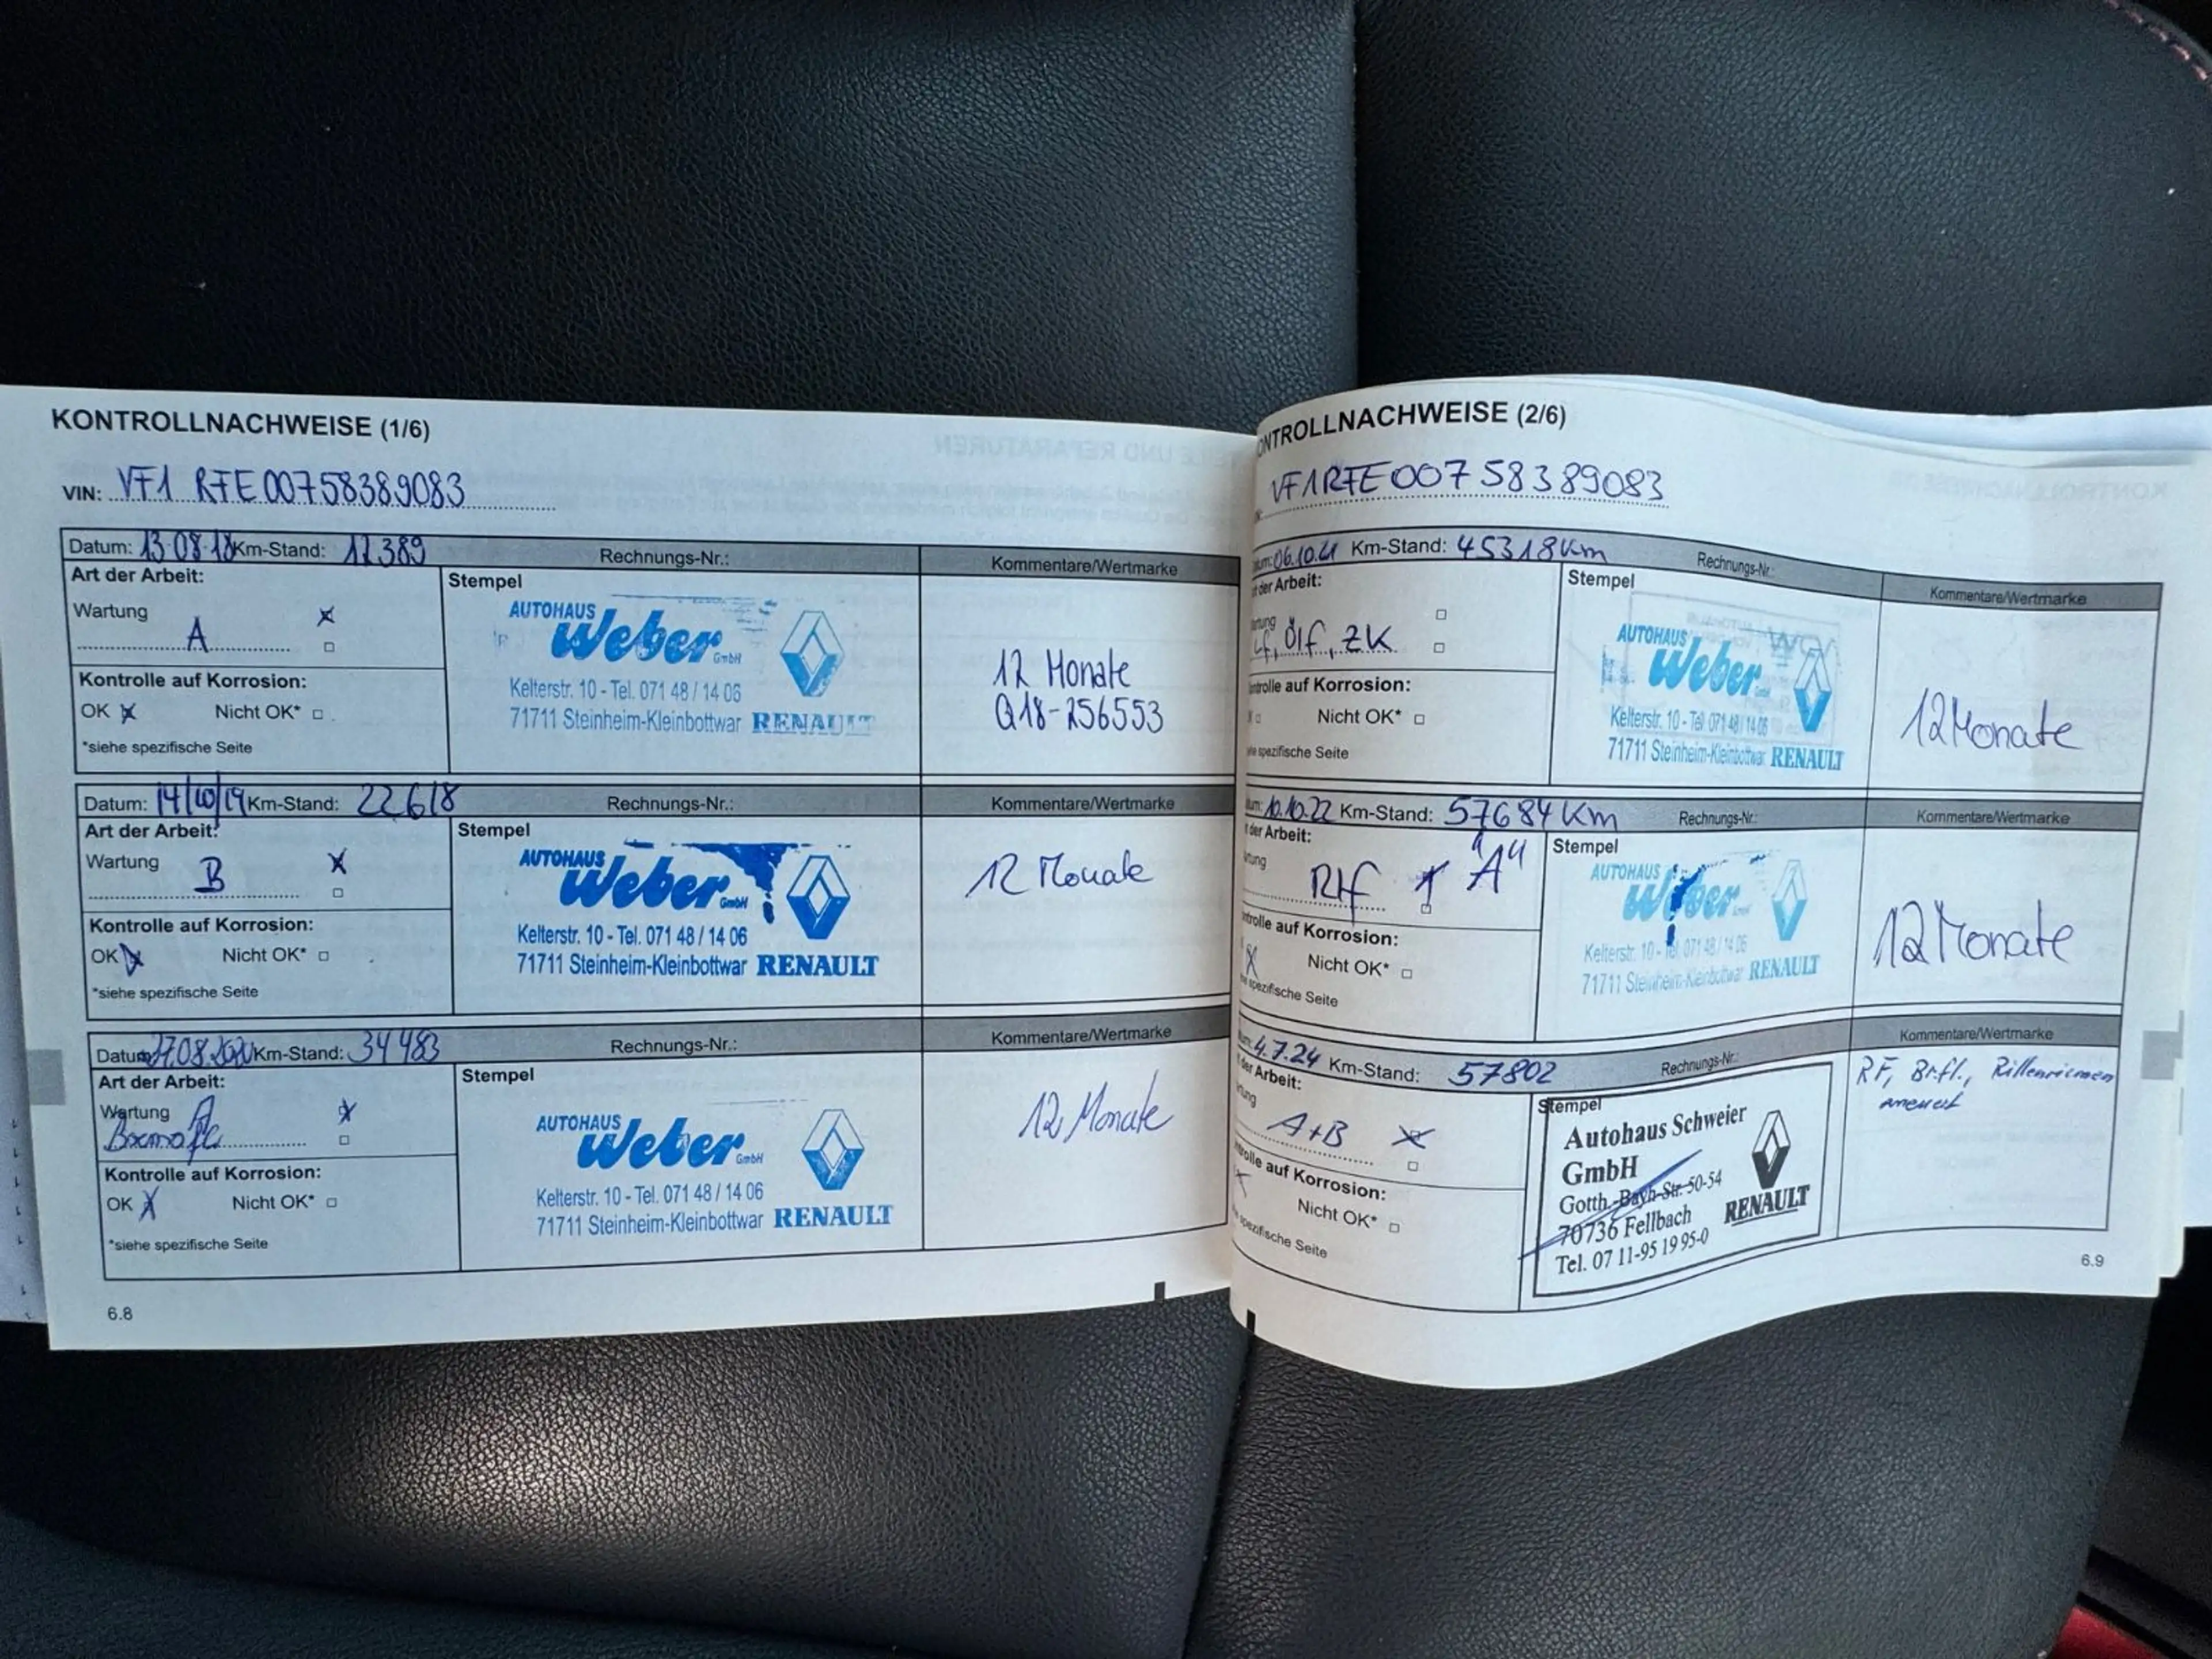 KONTROLLNACHWEISE (1/6)
VIN: VF1 RFE00758389083
Datum: 13.08.18 Km-Stand: 12389 Rechnungs-Nr.: Kommentare/Wertmarke
Art der Arbeit:
Stempel
Wartung
A
AUTOHAUS
Weber GmbH
Kelterstr. 10 - Tel. 071 48 / 14 06
71711 Steinheim-Kleinbottwar RENAULT
12 Monate
Q18-256553
Kontrolle auf Korrosion:
OK Nicht OK*
*siehe spezifische Seite
Datum: 14/10/19 Km-Stand: 22618 Rechnungs-Nr.: Kommentare/Wertmarke
Art der Arbeit:
Stempel
Wartung
B
AUTOHAUS
Weber GmbH
Kelterstr. 10 - Tel. 071 48 / 14 06
71711 Steinheim-Kleinbottwar RENAULT
12 Monate
Kontrolle auf Korrosion:
OK Nicht OK*
*siehe spezifische Seite
Datum 27.08.2020 Km-Stand: 34483 Rechnungs-Nr.: Kommentare/Wertmarke
Art der Arbeit:
Stempel
Wartung A
AUTOHAUS
Weber GmbH
Kelterstr. 10 - Tel. 071 48 / 14 06
71711 Steinheim-Kleinbottwar RENAULT
12 Monate
Kontrolle auf Korrosion:
OK Nicht OK*
*siehe spezifische Seite
6.8
ONTROLLNACHWEISE (2/6)
VF1RFE00758389083
06.10.21 Km-Stand: 45318 Km Rechnungs-Nr.: Kommentare/Wertmarke
der Arbeit:
Stempel
Lf, Ölf, ZK
AUTOHAUS
Weber
Kelterstr. 10 - Tel. 071 48 / 14 06
71711 Steinheim-Kleinbottwar RENAULT
12 Monate
auf Korrosion:
Nicht OK*
spezifische Seite
10.10.22 Km-Stand: 57684 Km Rechnungs-Nr.: Kommentare/Wertmarke
der Arbeit:
Stempel
"A"
AUTOHAUS
Weber
Kelterstr. 10 - Tel. 071 48 / 14 06
71711 Steinheim-Kleinbottwar RENAULT
12 Monate
auf Korrosion:
Nicht OK*
spezifische Seite
4.7.24 Km-Stand: 57802 Rechnungs-Nr.: Kommentare/Wertmarke
der Arbeit:
Stempel
A+B
Autohaus Schweier
GmbH
Gotth.-Bayh-Str. 50-54
70736 Fellbach
Tel. 07 11-95 19 95-0
RENAULT
RF, Br.fl., Rillenriemen
erneuert
auf Korrosion:
Nicht OK*
spezifische Seite
6.9